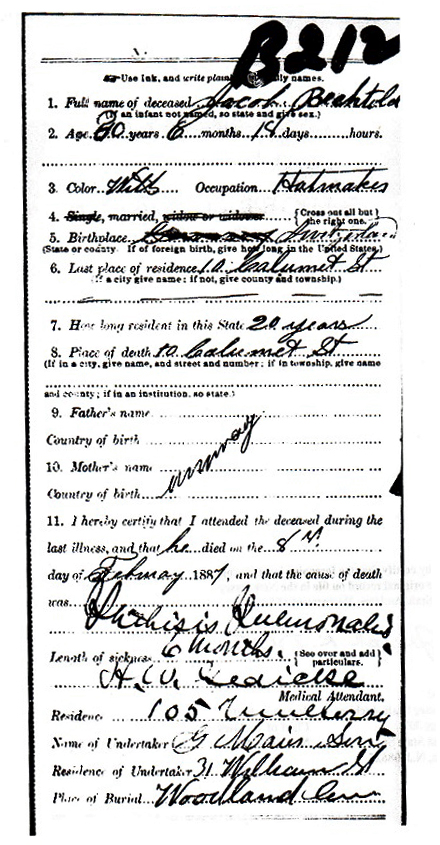 B212
N
Use Ink, and write plainly names.
1. Full name of deceased Jacob Bechtold
(If an infant not named, so state and give sex.)
2. Age 50 years 6 months 18 days hours.
3. Color White Occupation Hatmaker
4. Single, married, widow or widower {Cross out all but the right one.}
5. Birthplace Germany Switzerland
(State or county. If of foreign birth, give how long in the United States.)
6. Last place of residence 10 Calumet St
(If a city give name; if not, give county and township.)
7. How long resident in this State 20 years
8. Place of death 10 Calumet St
(If in a city, give name, and street and number; if in township, give name
and county; if in an institution, so state.)
9. Father's name
Country of birth
10. Mother's name
Country of birth
11. I hereby certify that I attended the deceased during the
last illness, and that he died on the 8
day of February 1887, and that the cause of death
was
Phthisis Pulmonalis
Length of sickness 6 months. {See over and add particulars.}
H. W.
Medical Attendant,
Residence 105 Mulberry
Name of Undertaker Son
Residence of Undertaker 31 William St
Place of Burial Woodland Cem